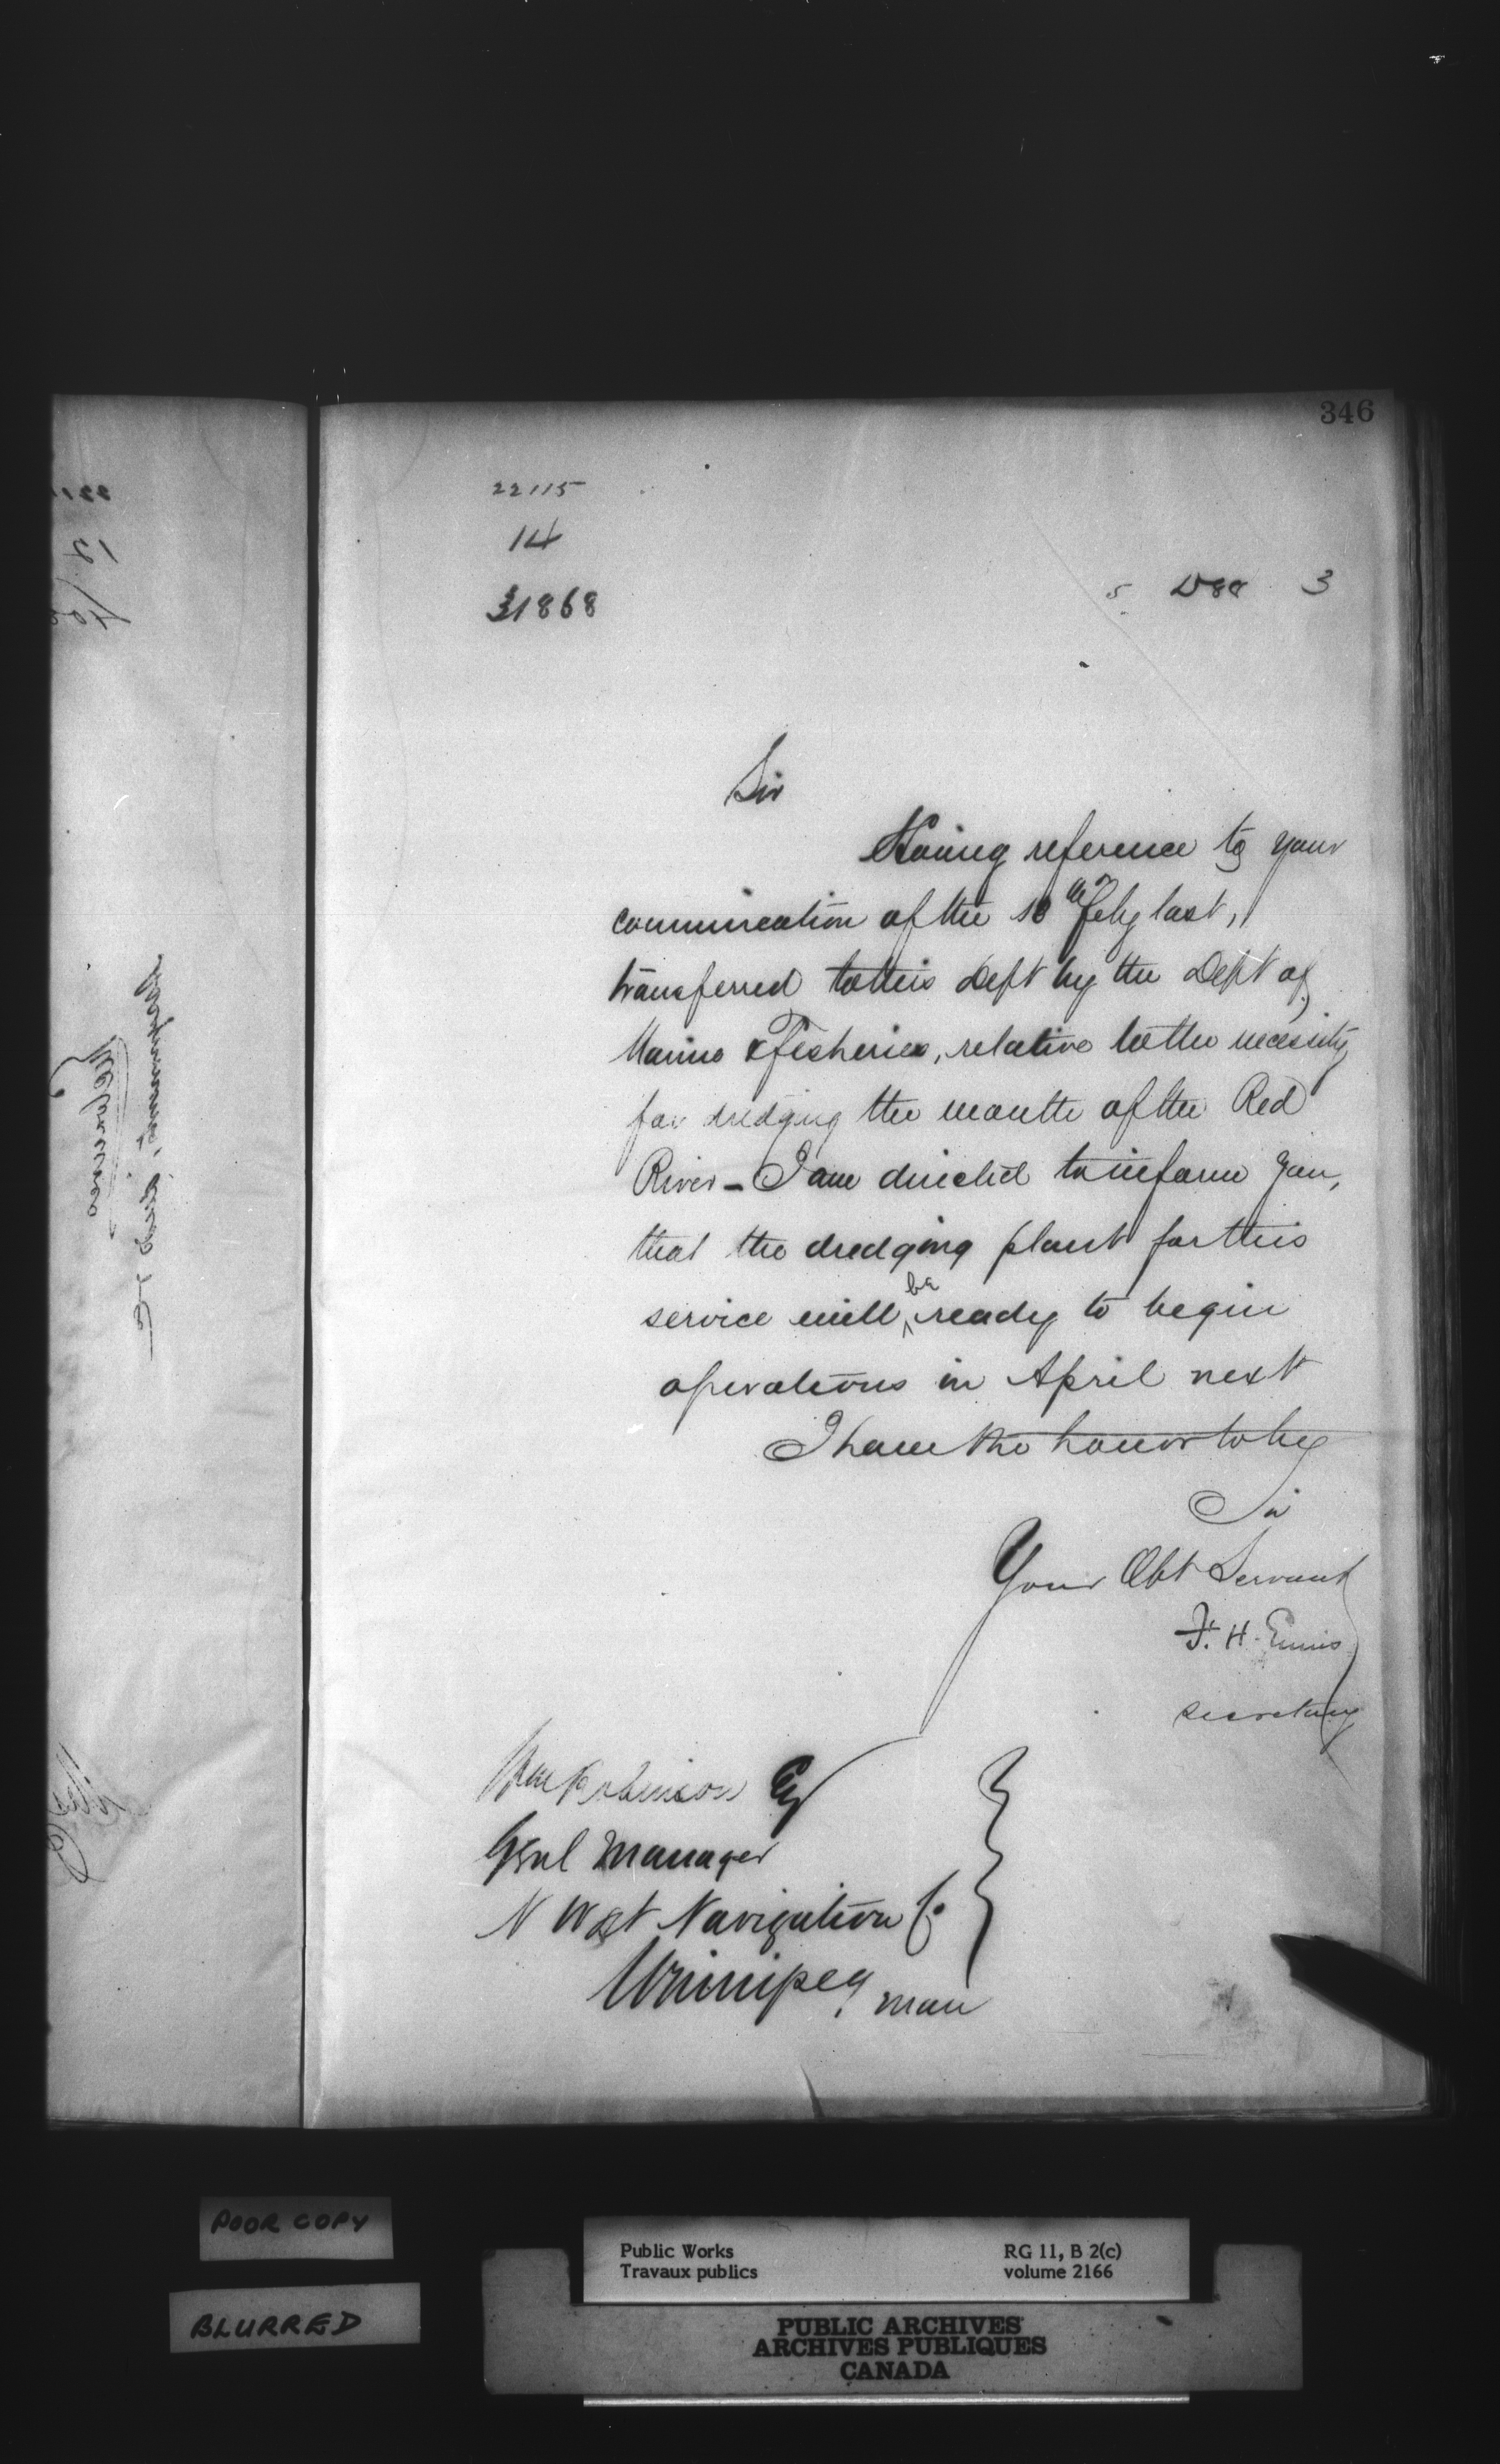 346
22115
14
31868
5 Dec 3
Sir
Having reference to your
communication of the 18th Feby last,
transferred to this Dept by the Dept of
Marine & Fisheries, relative to the necessity
for dredging the mouth of the Red
River - I am directed to inform you,
that the dredging plant for this
service will be ready to begin
operations in April next
I have the honor to be
Sir
Your Obt Servant
F. H. Ennis
secretary
Wm Robinson Esq
Genl Manager
N West Navigation Co.
Winnipeg, Man
POOR COPY
BLURRED
Public Works
Travaux publics
RG 11, B 2(c)
volume 2166
PUBLIC ARCHIVES
ARCHIVES PUBLIQUES
CANADA